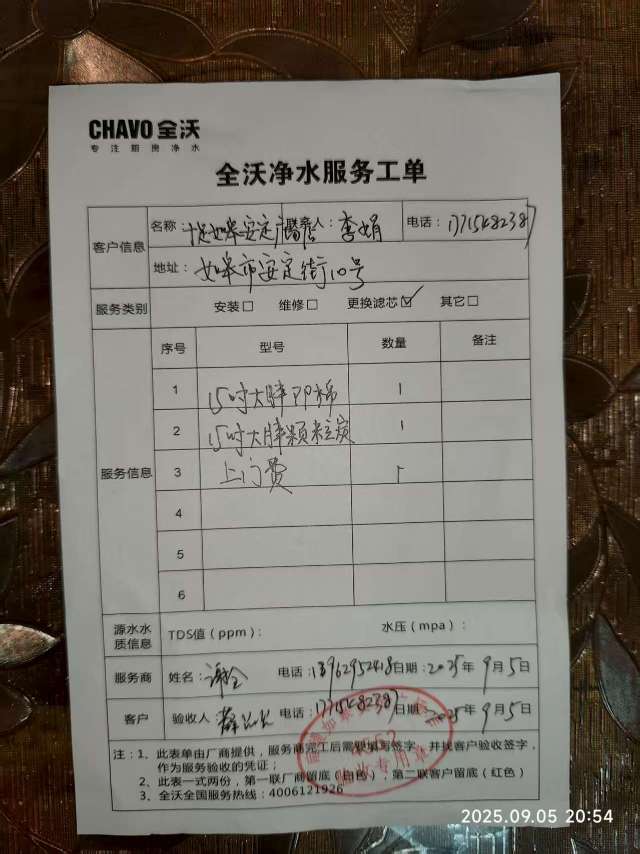 CHAVO 全沃
专注厨房净水
全沃净水服务工单
客户信息
名称 如皋安定广 联系人: 李娟 电话: 17715482387
地址: 如皋市安定街10号
服务类别 安装□ 维修□ 更换滤芯☑ 其它□
服务信息
序号 型号 数量 备注
1 15吋大胖PP棉 1
2 15吋大胖颗粒炭 1
3 上门费 1
4
5
6
源水水质信息 TDS值（ppm）: 水压（mpa）:
服务商 姓名: 谢全 电话: 13962952418 日期: 2025年9月5日
客户 验收人 电话: 17715482387 日期 2025年9月5日
注: 1、此表单由厂商提供，服务商完工后需要填写签字，并找客户验收签字，
作为服务验收的凭证；
2、此表一式两份，第一联厂商留底（白色），第二联客户留底（红色）
3、全沃全国服务热线: 4006121926
2025.09.05 20:54